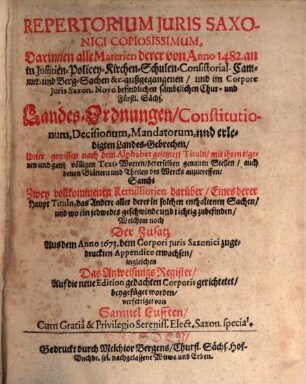 REPERTORIUM JURIS SAXO-
NICI COPIOSISSIMUM,
Darinnen alle Materien derer von Anno 1482. an
in Justitien-Policey-Kirchen-Schulen-Consistorial-Cam-
mer-und Berg-Sachen &c. außgegangenen / und im Corpore
Juris Saxon. Novo befindlichen sämbtlichen Chur- und
Fürstl. Sächs.
Landes-Ordnungen / Constitutio-
num, Decisionum, Mandatorum, und erle-
digten Landes-Gebrechen,
Unter gewissen nach dem Alphabet gesetzten Tituln / mit ihren eige-
nen und gantz völligen Text-Worten derer selben genauen Stellen / auch
denen Blättern und Theilen des Wercks anzutreffen /
Sambt
Zwey vollkommenen Remissiorien darüber / Eines derer
Haupt Tituln, das Andere aller derer in solchen enthaltenen Sachen /
und wo ein jedwedes geschwinde und richtig zubefinden /
Welchem noch
Der Zusatz
Aus dem Anno 1673. dem Corpori juris Saxonici zuge-
druckten Appendice erwachsen /
ingleichen
Das Anweisungs Register /
Auf die neue Edition gedachten Corporis gerichtetet /
beygefüget worden /
verfertiget von
Samuel Lufften /
Cum Gratiâ & Privilegio Sereniss. Elect. Saxon. special.
Gedruckt durch Melchior Bergens / Churfl. Sächs. Hof-
Buchdr. sel. nachgelassene Witwe und Erben.